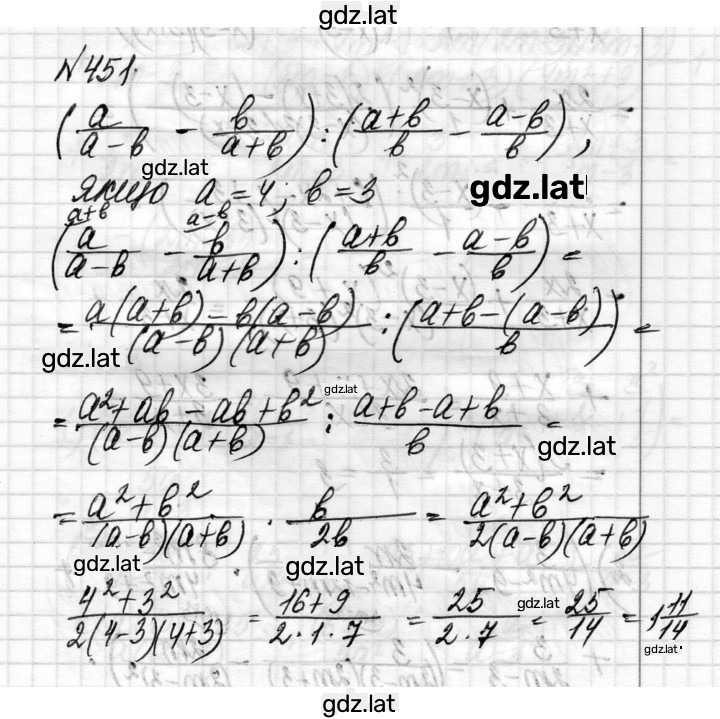 gdz.lat
№451.
(a/(a-b) - b/(a+b)) : ((a+b)/b - (a-b)/b),
gdz.lat
якщо a=4; b=3
gdz.lat
a+b a-b
(a/(a-b) - b/(a+b)) : ((a+b)/b - (a-b)/b) =
= (a(a+b) - b(a-b))/((a-b)(a+b)) : ((a+b-(a-b))/b) =
gdz.lat
gdz.lat
= (a²+ab-ab+b²)/((a-b)(a+b)) : (a+b-a+b)/b =
gdz.lat
= (a²+b²)/((a-b)(a+b)) · b/2b = (a²+b²)/(2(a-b)(a+b))
gdz.lat
gdz.lat
(4²+3²)/(2(4-3)(4+3)) = (16+9)/(2·1·7) = 25/(2·7) = 25/14 = 1 11/14.
gdz.lat
gdz.lat
gdz.lat